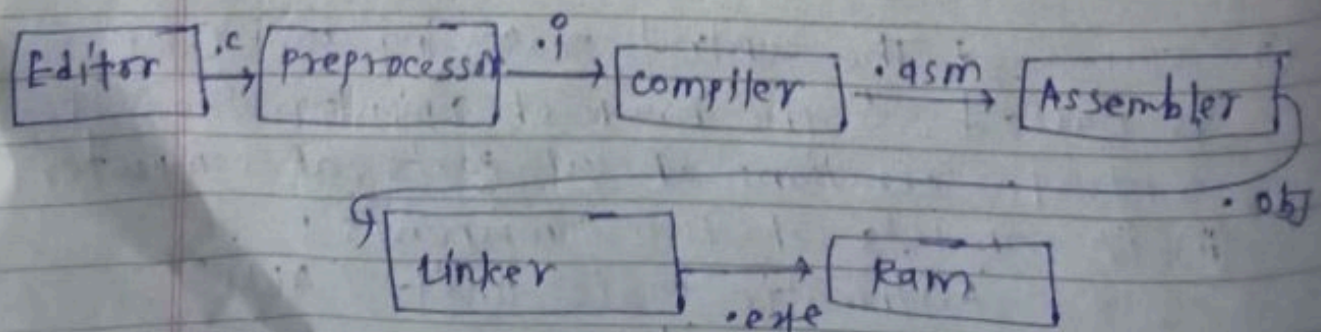 Editor .c preprocessor .i compiler .asm Assembler
.obj
Linker .exe Ram